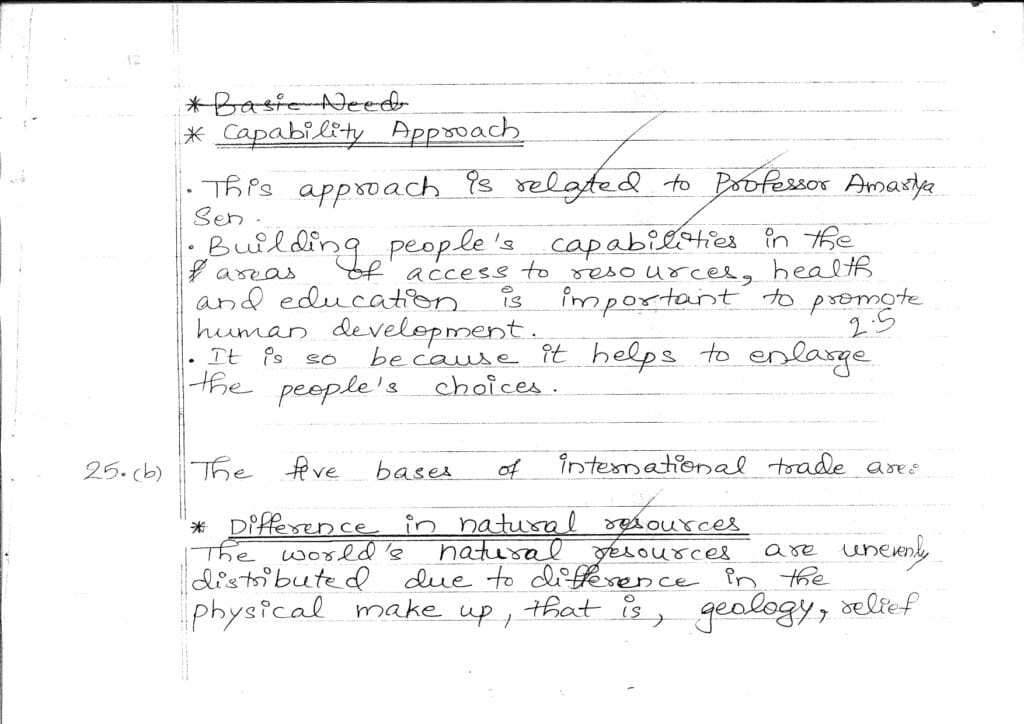 * Basic Needs
* Capability Approach
. This approach is related to Professor Amartya
Sen.
. Building people's capabilities in the
areas of access to resources, health
and education is important to promote
human development.
2.5
. It is so because it helps to enlarge
the people's choices.
25. (b) The five bases of international trade are:
* Difference in natural resources
The world's natural resources are unevenly
distributed due to difference in the
physical make up, that is, geology, relief